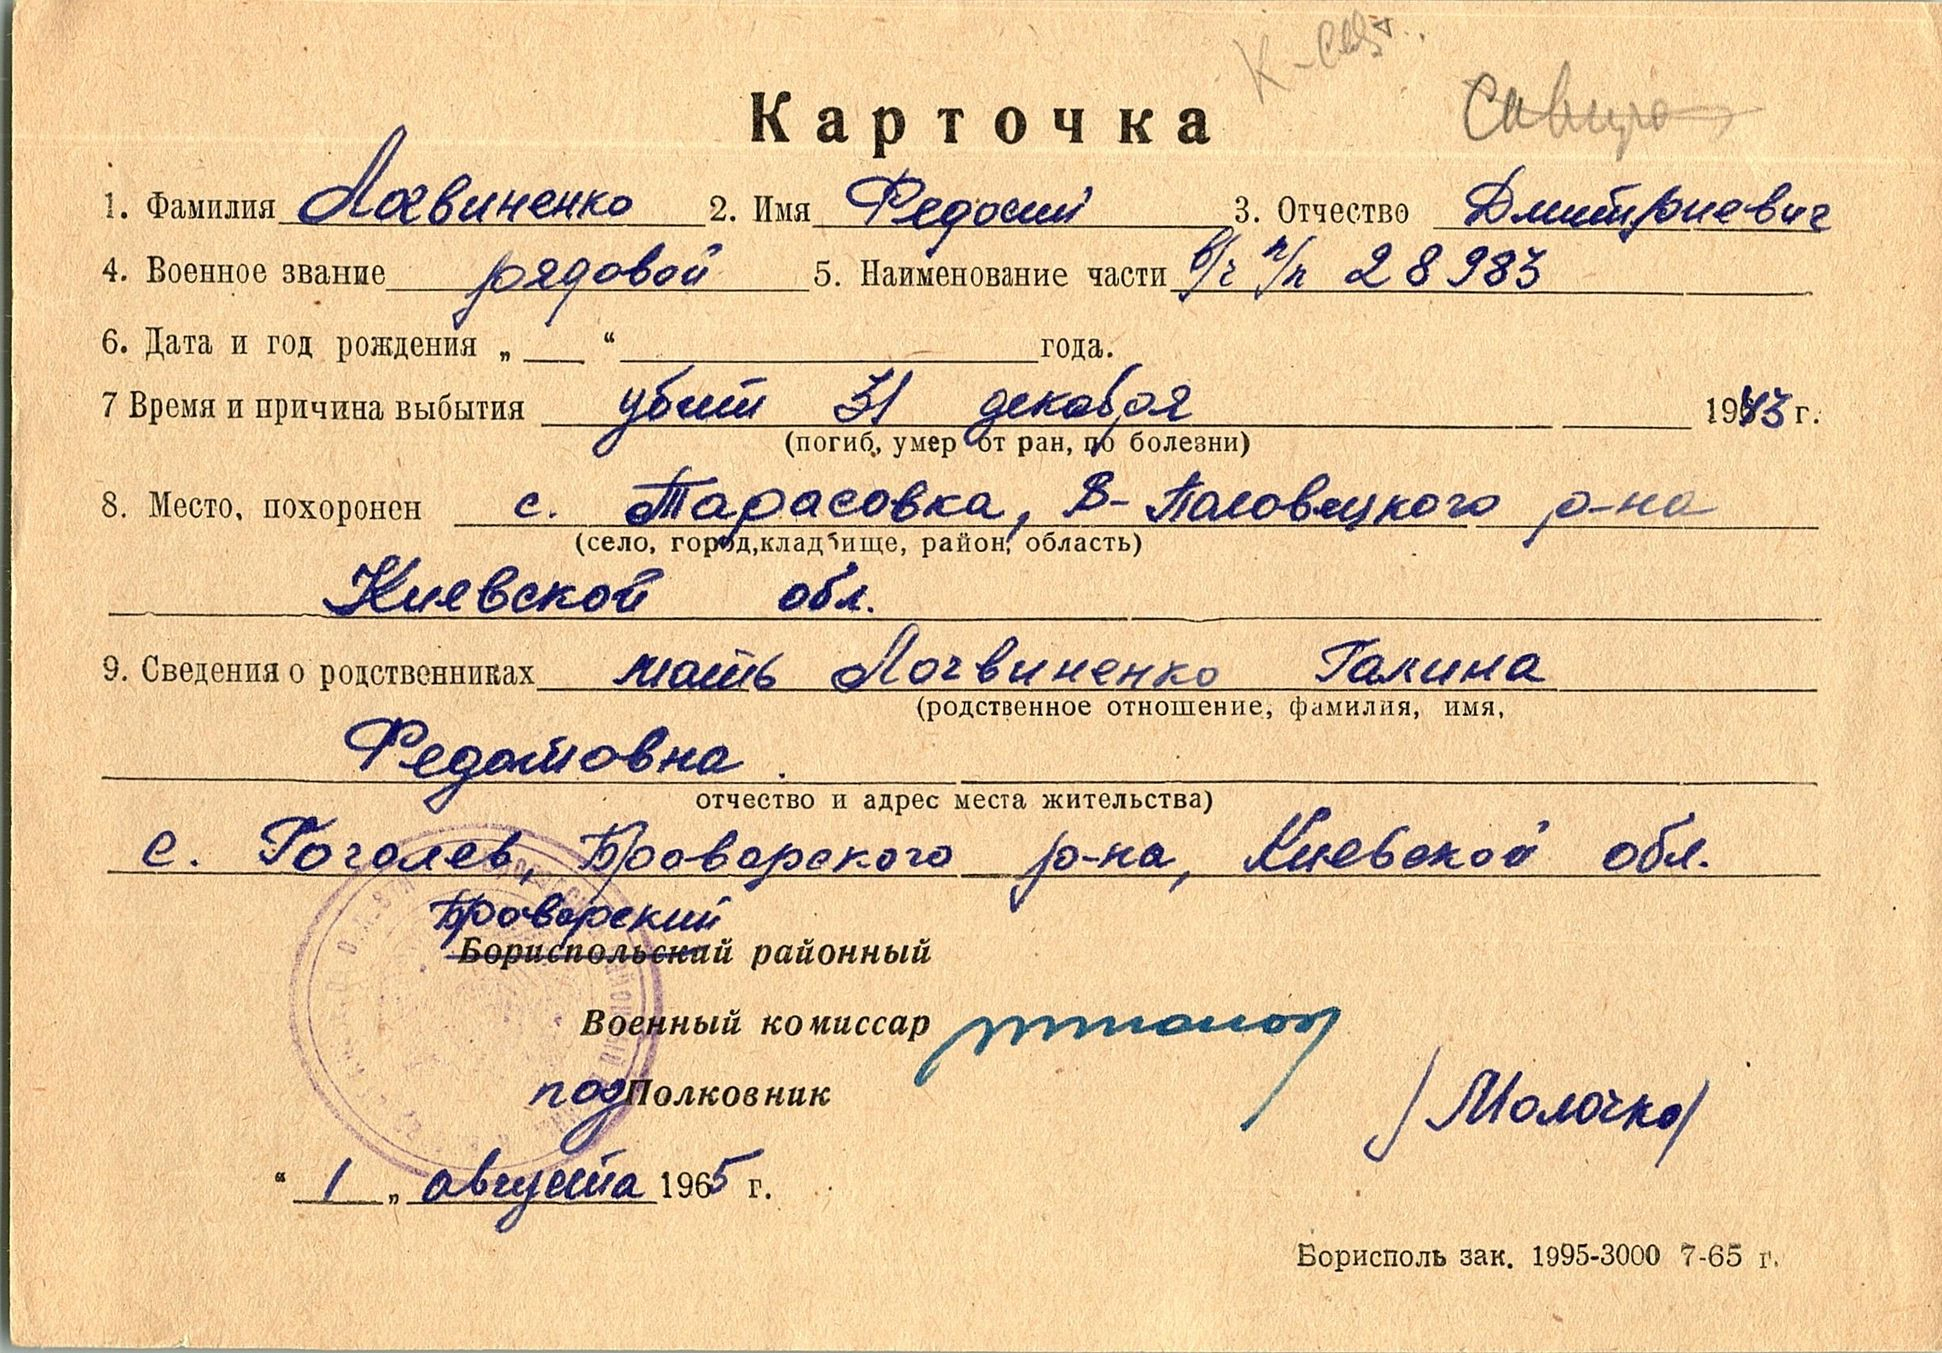 Карточка
1. Фамилия Логвиненко 2. Имя Федосий 3. Отчество Дмитриевич
4. Военное звание рядовой 5. Наименование части в/ч п/п 28983
6. Дата и год рождения „ “ года.
7 Время и причина выбытия убит 31 декабря 1943 г.
(погиб, умер от ран, по болезни)
8. Место, похоронен с. Тарасовка, В-Половецкого р-на
(село, город, кладбище, район, область)
Киевской обл.
9. Сведения о родственниках мать Логвиненко Галина
(родственное отношение, фамилия, имя,
Федотовна.
отчество и адрес места жительства)
с. Гоголев, Броварского р-на, Киевской обл.
Броварский
Бориспольский районный
Военный комиссар
подПолковник
/Молочко/
“ 1 „ августа 1965 г.
Борисполь зак. 1995-3000 7-65 г.